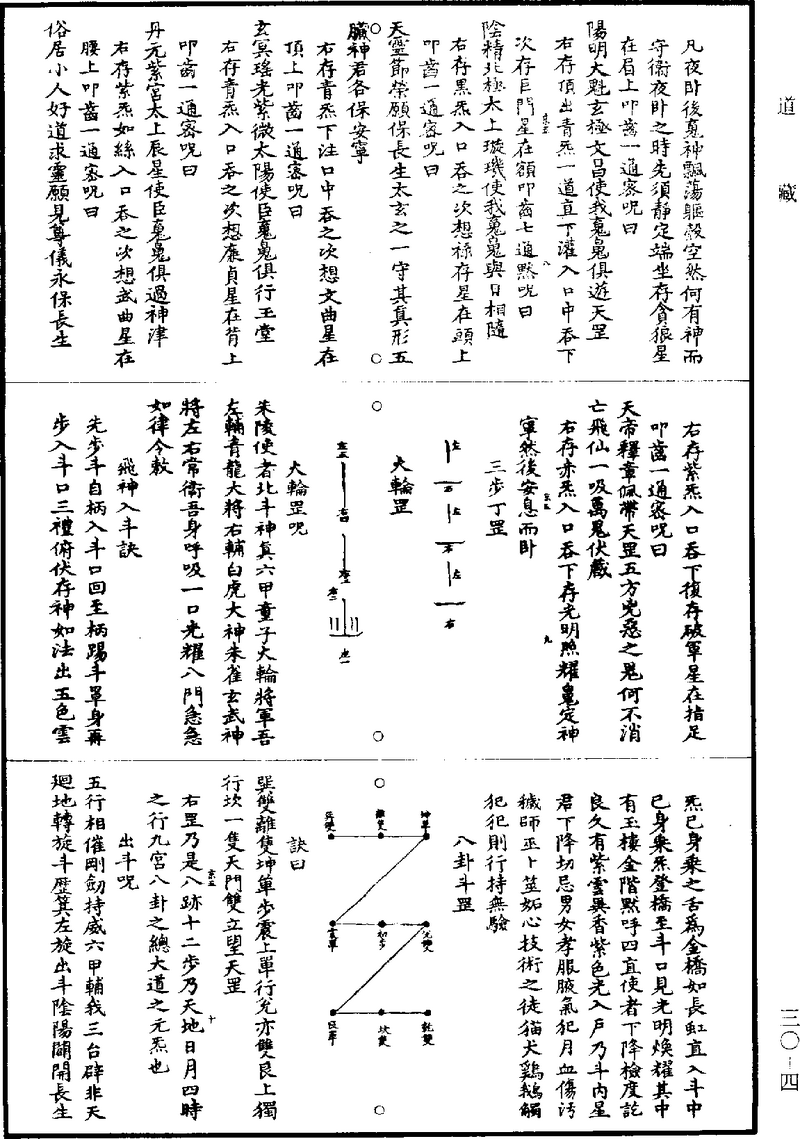 道藏
三〇—四
凡夜卧後䰟神飄蕩軀殼空然何有神而
守衛夜卧之時先須静定端坐存貪狼星
在眉上叩齒一通密呪曰
陽明大魁玄極文昌使我䰟䰟俱遊天罡
右存頂出青炁一道直下灌入口中吞下
次存巨門星在額叩齒七通默呪曰
陰精北極太上璇璣使我䰟䰟與日相隨
右存黑炁入口吞之次想祿存星在頭上
叩齒一通密呪曰
天靈節榮願保長生太玄之一守其真形五
臟神君各保安寧
右存青炁下注口中吞之次想文曲星在
頂上叩齒一通密呪曰
玄冥瑤光紫微太陽使臣䰟䰟俱行玉堂
右存青炁入口吞之次想廉貞星在背上
叩齒一通密呪曰
丹元紫宫太上辰星使臣䰟䰟俱過神津
右存紫炁如絲入口吞之次想武曲星在
腰上叩齒一通密呪曰
俗居小人好道求靈願見尊儀永保長生
右存紫炁入口吞下復存破軍星在指足
叩齒一通密呪曰
天帝釋章佩帶天罡五方兇惡之鬼何不消
亡飛仙一吸萬鬼伏藏
右存赤炁入口吞下存光明照耀䰟定神
寧然後安息而卧
三步丁罡
左
右
左
右
左
右
大輪罡
大輪罡呪
朱陵使者北斗神真六甲童子大輪將軍吾
左輔青龍大將右輔白虎大神朱雀玄武神
將左右常衛吾身呼吸一口光耀八門急急
如律令敕
飛神入斗訣
先步斗自柄入斗口回至柄踢斗罩身再
步入斗口三禮俯伏存神如法出五色雲
炁已身乘之舌爲金橋如長虹直入斗中
已身乘炁登橋至斗口見光明煥耀其中
有玉樓金階默呼四直使者下降檢度訖
良久有紫雲異香紫色光入戶乃斗内星
君下降切忌男女孝服腋氣犯月血傷汚
穢師巫卜筮妬心技術之徒猫犬鷄鵝觸
犯犯則行持無驗
八卦斗罡
坤單
離雙
巽雙
兌雙
初步
震單
乾雙
坎雙
艮單
訣曰
巽雙離雙坤單步震上單行兌亦雙艮上獨
行坎一隻天門雙立望天罡
右罡乃是八跡十二步乃天地日月四時
之行九宫八卦之總大道之元炁也
出斗呪
五行相催剛劒持威六甲輔我三台辟非天
廻地轉旋斗歷箕左旋出斗陰陽闢開長生